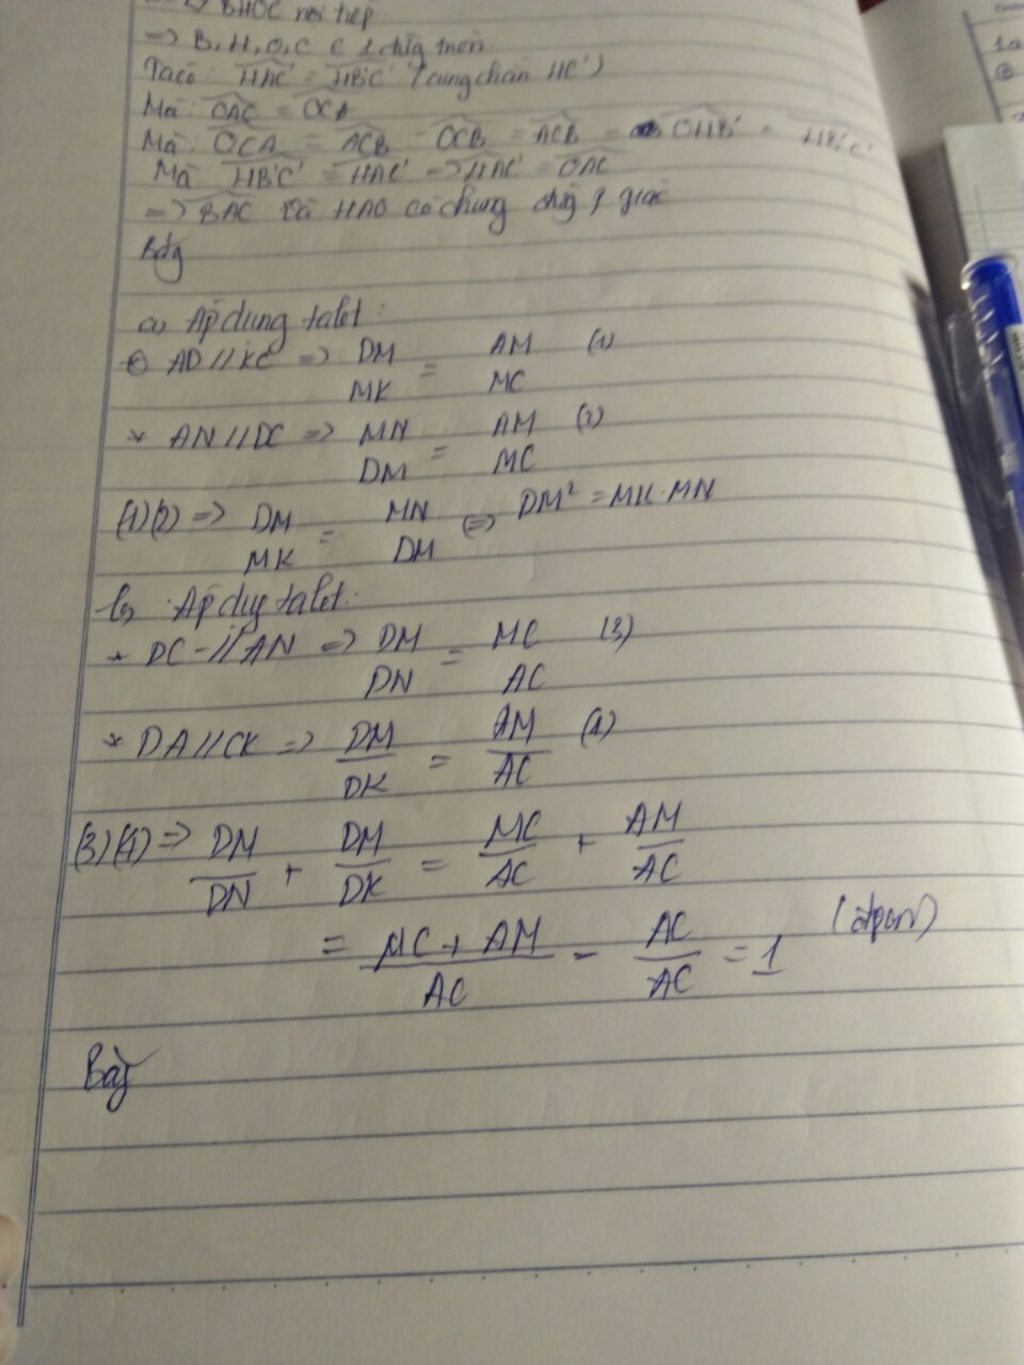 => BHOC nội tiếp
=> B, H, O, C ∈ 1 đường tròn
Ta có: HAC' = HB'C' (cùng chắn HC')
Mà: OAC = OCA
Mà: OCA = ACB - OCB = ACB = OHB' = HB'C'
Mà HB'C' = HAC' => HAC' = OAC
=> BAC và HAO có chung đg f giác
a, Áp dụng talet:
AD // KC => DM/MK = AM/MC (1)
* AN // DC => MN/DM = AM/MC (2)
(1)(2) => DM/MK = MN/DM (=) DM² = MK.MN
b, Áp dụg talet:
* DC // AN => DM/DN = MC/AC (3)
* DA // CK => DM/DK = AM/AC (4)
(3)(4) => DM/DN + DM/DK = MC/AC + AM/AC
= MC + AM/AC = AC/AC = 1 (đpcm)
Bài